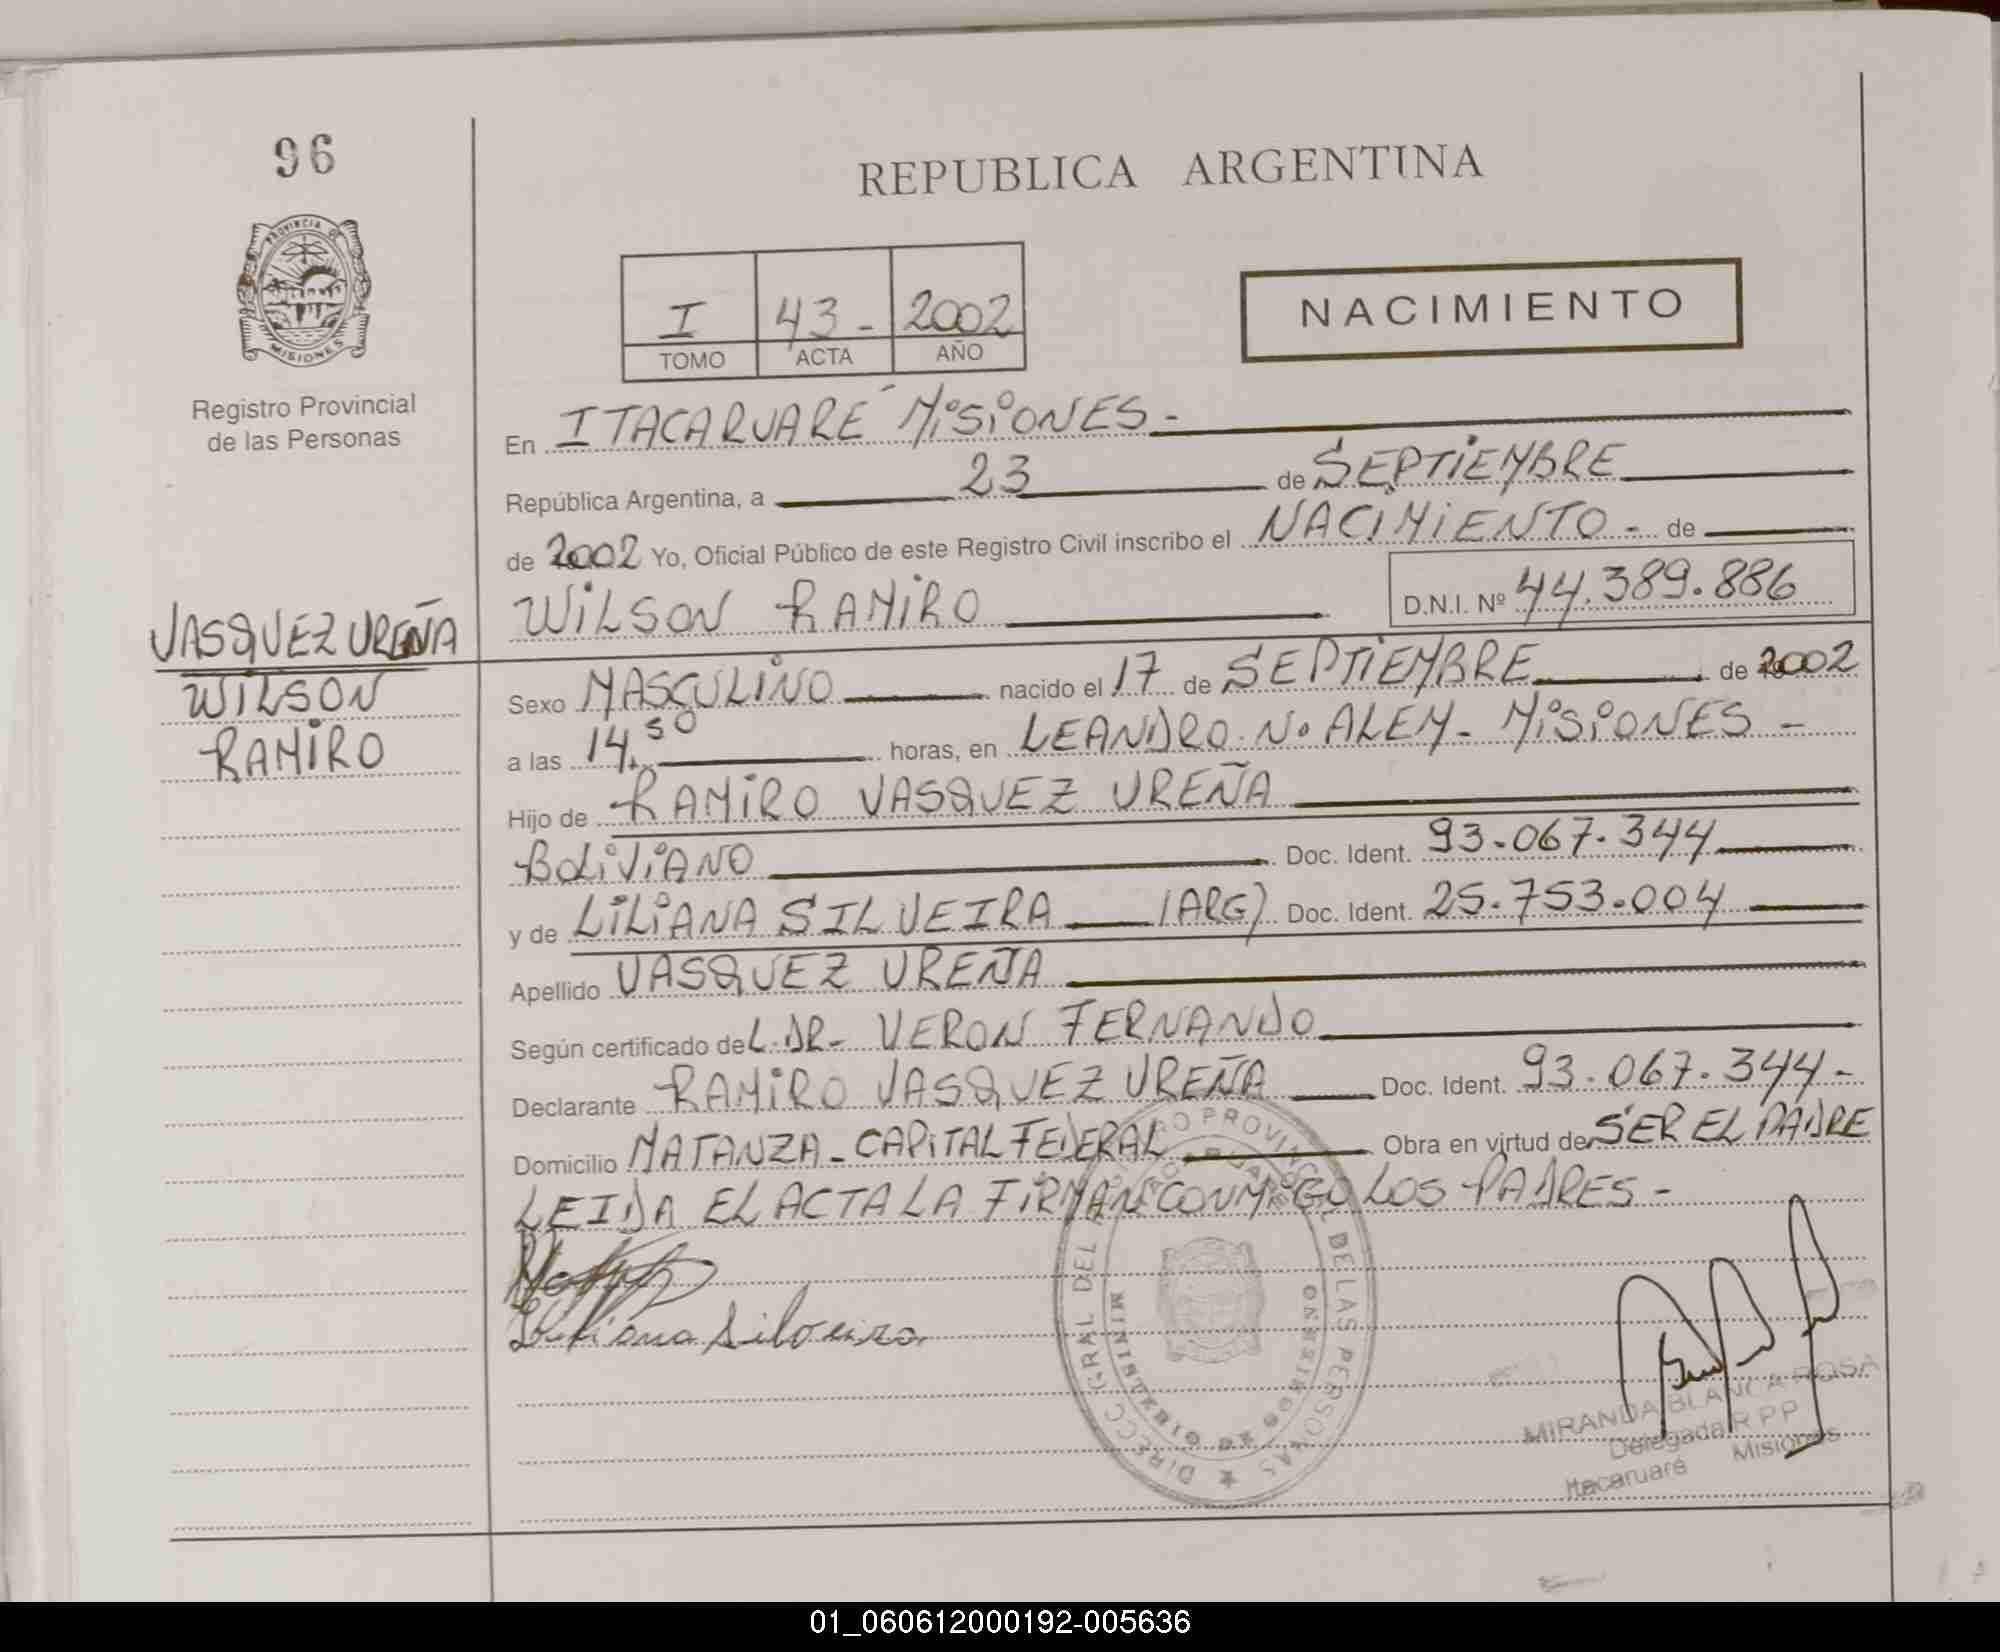 96
PROVINCIA DE
MISIONES
Registro Provincial
de las Personas
VASQUEZ UREÑA
WILSON
RAMIRO
REPUBLICA ARGENTINA
I 43- 2002
TOMO ACTA AÑO
NACIMIENTO
En ITACARUARE MISIONES-
República Argentina, a 23 de SEPTIEMBRE
de 2002 Yo, Oficial Público de este Registro Civil inscribo el NACIMIENTO- de
WILSON RAMIRO D.N.I. Nº 44.389.886
Sexo MASCULINO nacido el 17 de SEPTIEMBRE de 2002
a las 14.50 horas, en LEANDRO N. ALEM- MISIONES-
Hijo de RAMIRO VASQUEZ UREÑA
BOLIVIANO Doc. Ident. 93.067.344
y de LILIANA SILVEIRA (ARG) Doc. Ident. 25.753.004
Apellido VASQUEZ UREÑA
Según certificado del DR- VERON FERNANDO
Declarante RAMIRO VASQUEZ UREÑA Doc. Ident. 93.067.344-
Domicilio MATANZA-CAPITAL FEDERAL Obra en virtud de SER EL PADRE
LEIDA EL ACTA LA FIRMAN CONMIGO LOS PADRES-
Liliana Silveira
DIRECC GRAL DEL PROVINCIAL DE LAS PERSONAS
MINISTERIO DE GOBIERNO
MIRANDA BLANCA ROSA
Delegada R P P
Itacaruaré Misiones
01_060612000192-005636